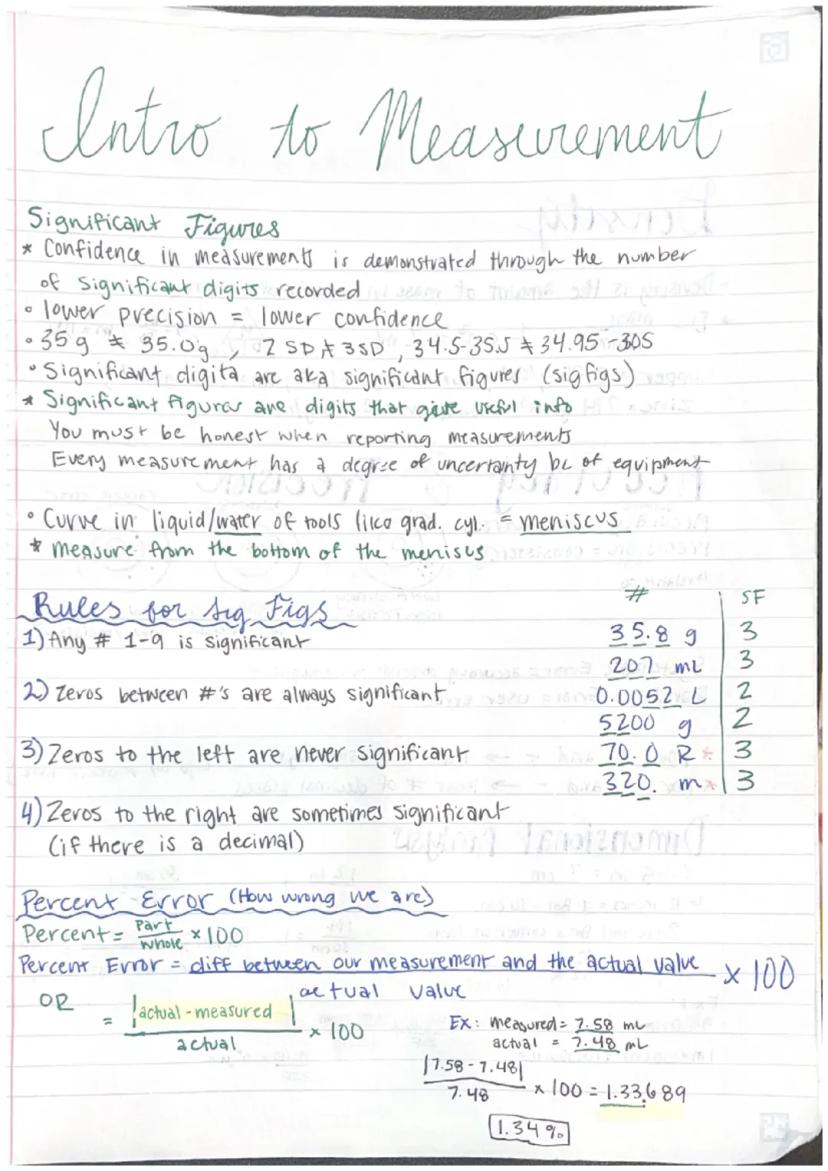 Intro to Measurement
Significant Figures
* Confidence in measurements is demonstrated through the number
of significant digits recorded
• lower precision = lower confidence
• 35 g ≠ 35.0g, 2 SD ≠ 3SD, 34.5-35.5 ≠ 34.95-305
• Significant digita are aka significant figures (sigfigs)
* Significant figures are digits that give useful info
You must be honest when reporting measurements
Every measurement has a degree of uncertainty bc of equipment
• Curve in liquid/water of tools like grad. cyl. = meniscus
* measure from the bottom of the meniscus
Rules for Sig Figs
# SF
1) Any # 1-9 is significant
35.8 g 3
207 mL 3
2) Zeros between #'s are always significant
0.0052 L 2
5200 g 2
3) Zeros to the left are never significant
70.0 R * 3
320. m * 3
4) Zeros to the right are sometimes significant
(if there is a decimal)
Percent Error (How wrong we are)
Percent = Part/whole × 100
Percent Error = diff between our measurement and the actual value × 100
actual value
OR
= |actual - measured| × 100
actual
Ex: measured = 7.58 mL
actual = 7.48 mL
|7.58 - 7.48|
7.48 × 100 = 1.33689
1.34%